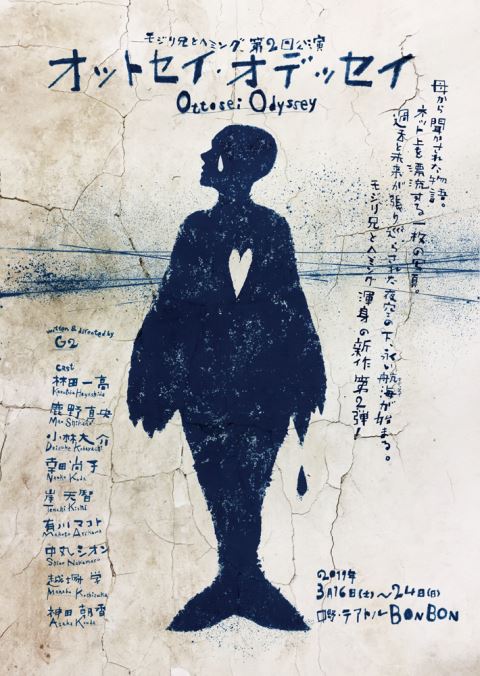 モジリ兄とヘミング 第2回公演
オットセイ・オデッセイ
Ottosei Odyssey
母から聞かされた物語。
ネット上を漂流する一枚の写真。
過去と未来が張り巡らされた夜空の下、永い航海が始まる。
モジリ兄とヘミング 渾身の新作 第2弾!
written & directed by
G2
cast
林田一高
Kazutaka Hayashida
鹿野真央
Mao Shikano
小林大介
Daisuke Kobayashi
幸田尚子
Naoko Kouda
崖天智
有川マコト
Makoto Arikawa
中丸シオン
Sion Nakamaru
越塚学
Manabu Koshizuka
神田朝香
Asaka Kanda
2019年
3月16日(土)〜24日(日)
中野・テアトルBONBON